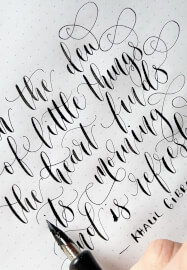 in the dew
of little things
the heart finds
its morning
and is refresh
— KHALIL GIB